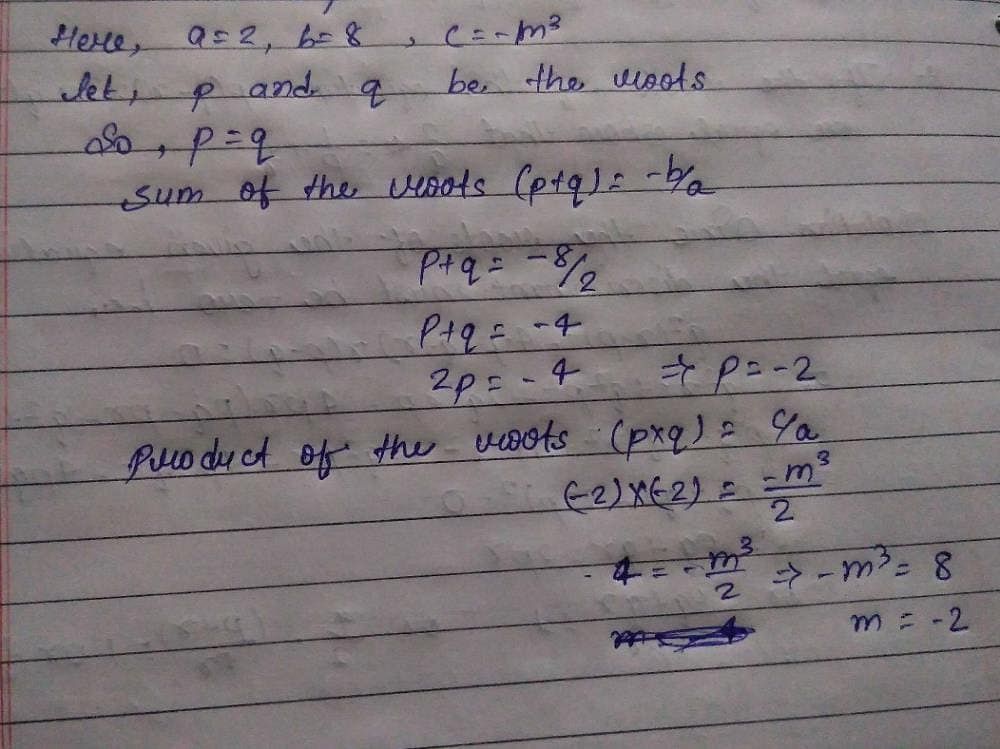 Here, a=2, b=8 , c=-m³
let, p and q be the roots
So, p=q
sum of the roots (p+q)= -b/a
p+q= -8/2
p+q= -4
2p= -4 ⇒ p=-2
product of the roots (p×q)= c/a
(-2)×(-2) = -m³/2
4 = -m³/2 ⇒ -m³= 8
m = -2